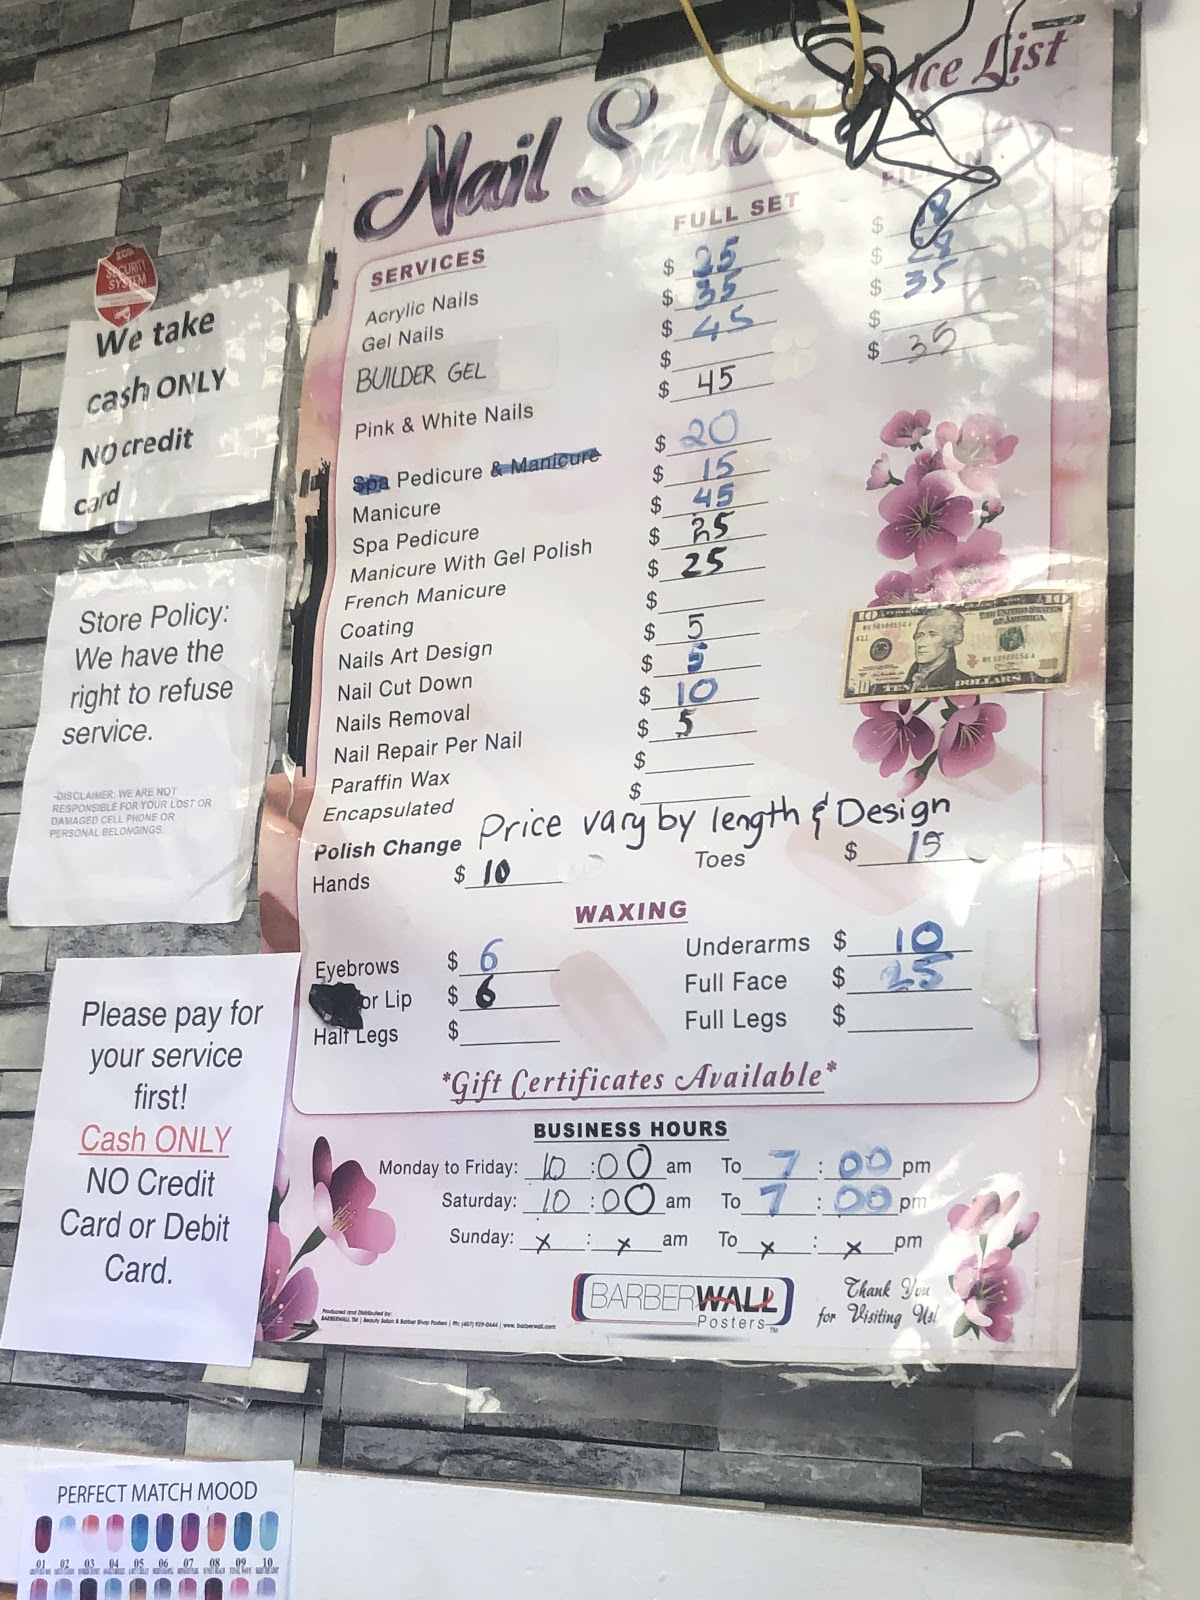 Nail Salon
Price List
SERVICES FULL SET FILL IN
Acrylic Nails $ 25 $ 18
Gel Nails $ 35 $ 28
BUILDER GEL $ 45 $ 35
$ $
Pink & White Nails $ 45 $ 35
Spa Pedicure & Manicure $ 20
Manicure $ 15
Spa Pedicure $ 45
Manicure With Gel Polish $ 25
French Manicure $ 25
Coating $
Nails Art Design $ 5
Nail Cut Down $ 5
Nails Removal $ 10
Nail Repair Per Nail $ 5
Paraffin Wax $
Encapsulated $
Price vary by length & Design
Polish Change
Hands $ 10 Toes $ 15
WAXING
Eyebrows $ 6 Underarms $ 10
or Lip $ 6 Full Face $ 25
Half Legs $ Full Legs $
*Gift Certificates Available*
BUSINESS HOURS
Monday to Friday: 10 : 00 am To 7 : 00 pm
Saturday: 10 : 00 am To 7 : 00 pm
Sunday: x : x am To x : x pm
BARBERWALL
Posters TM
Thank You
for Visiting Us!
Produced and Distributed by:
BARBERWALL TM | Beauty Salon & Barber Shop Posters | Ph: (407) 929-0644 | www.barberwall.com
SECURITY
SYSTEM
We take
cash ONLY
NO credit
card
Store Policy:
We have the
right to refuse
service.
-DISCLAIMER: WE ARE NOT
RESPONSIBLE FOR YOUR LOST OR
DAMAGED CELL PHONE OR
PERSONAL BELONGINGS.
Please pay for
your service
first!
Cash ONLY
NO Credit
Card or Debit
Card.
10 THE UNITED STATES 10
OF AMERICA
$10 TEN DOLLARS
PERFECT MATCH MOOD
01 02 03 04 05 06 07 08 09 10